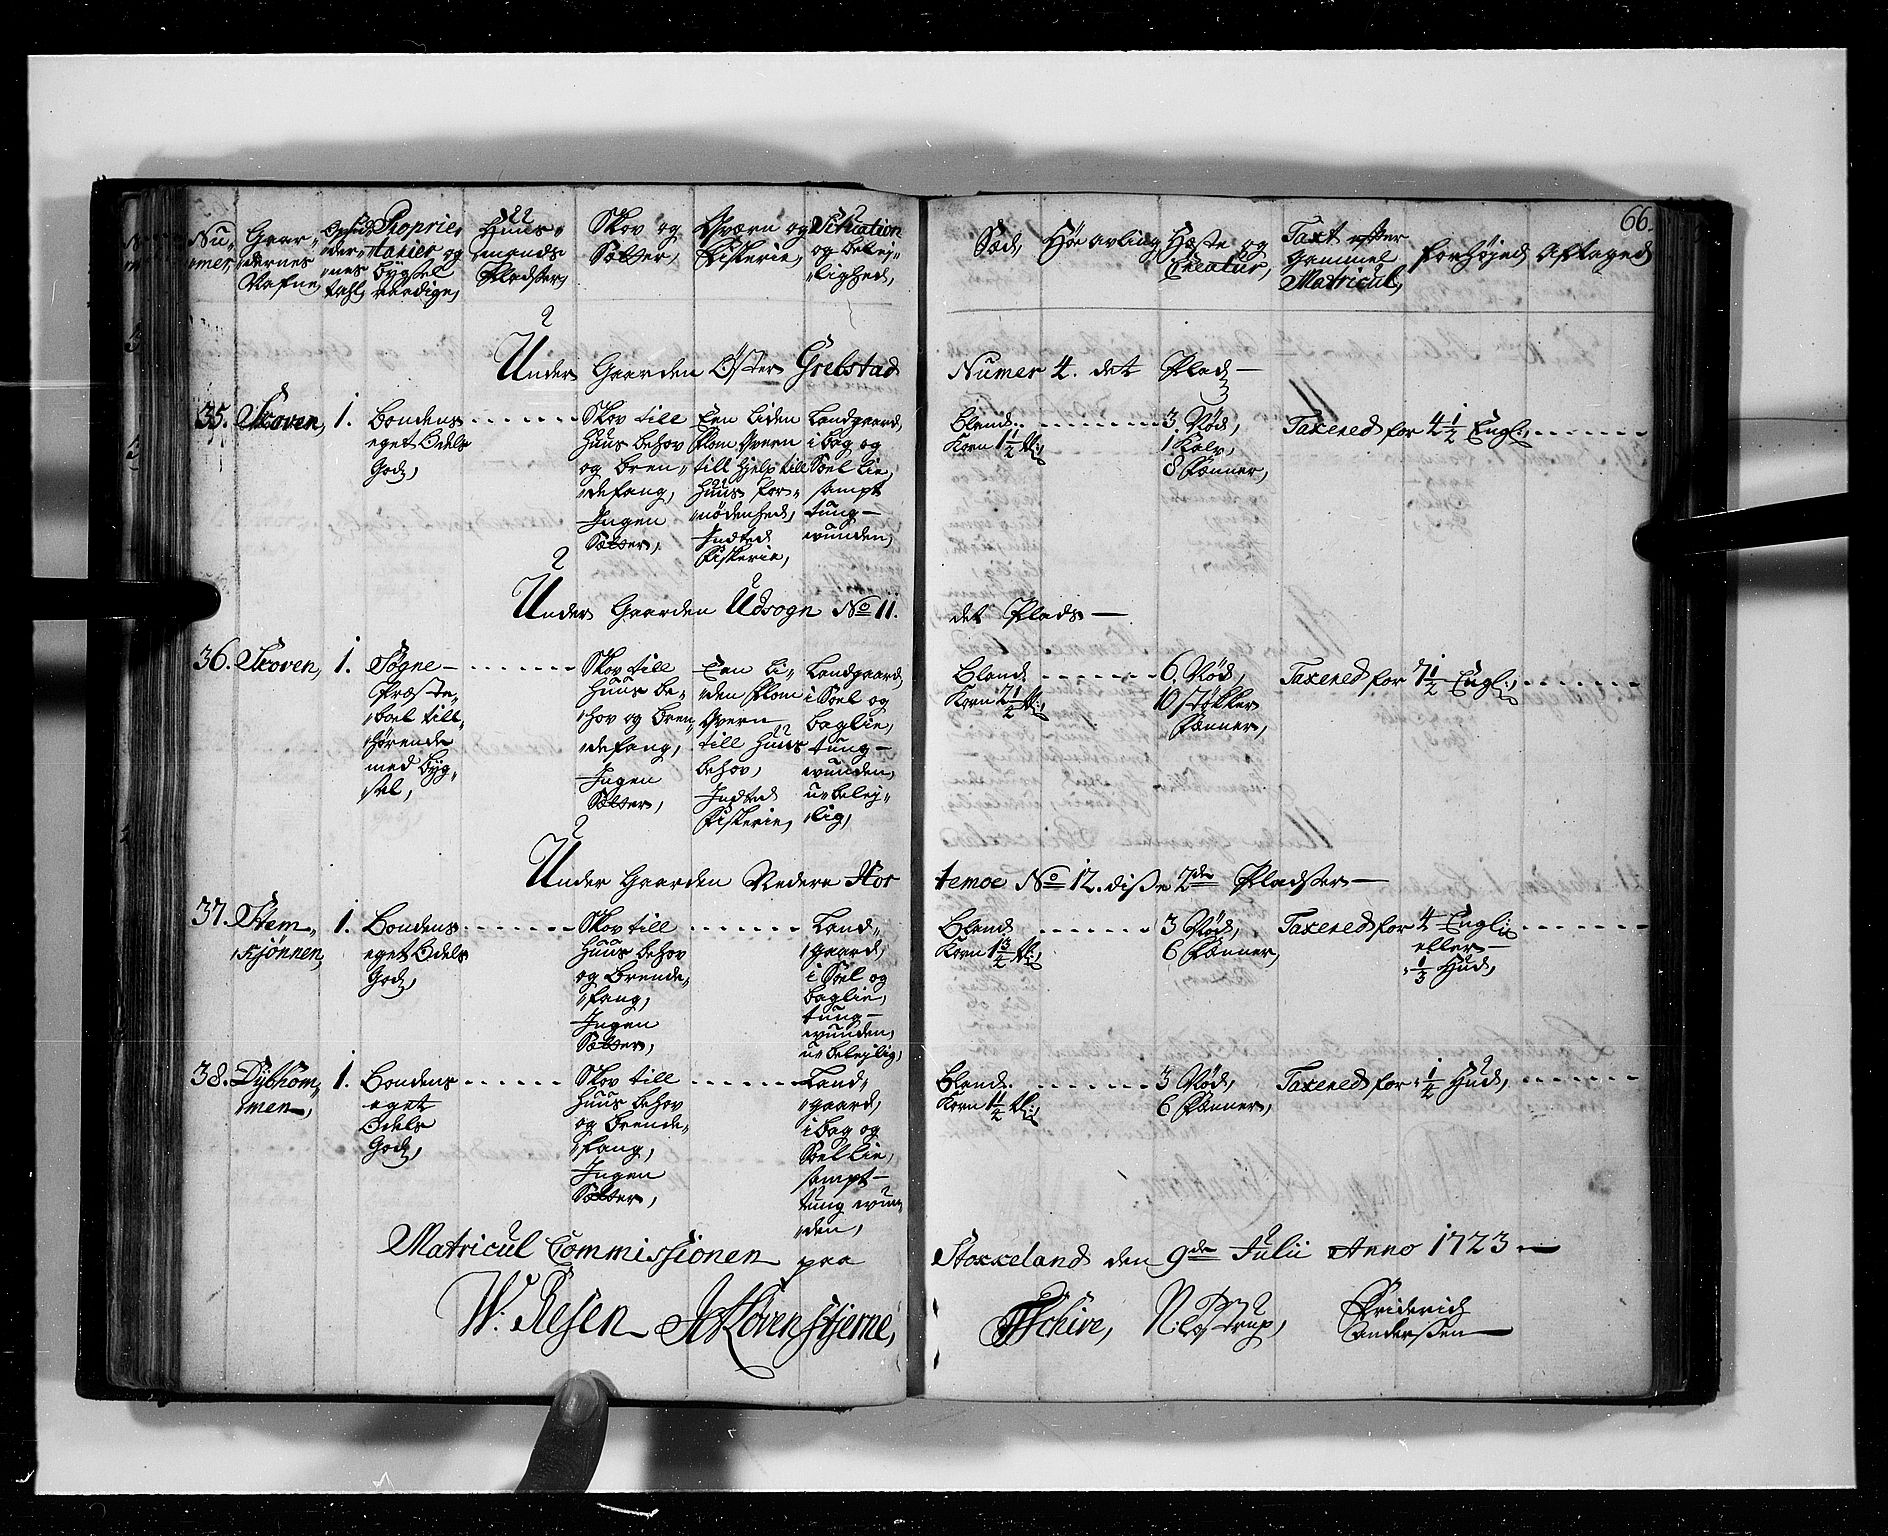 66.
Nu-mer, Gaar-dernes Nafne, Opsid-der-nes tahl, Proprie-tarier og bÿgsel raadige, Huus-mands Pladser, Skov og Sætter, Qværn og Fiskerie, Situation og belej-lighed,
Sæd, Høe avling, Hæste og Creatur, Taxt efter Gammel Matricul, forhøjed Aftaged
Under Gaarden Øster Grebstad Numer 4. det Plads
35. Skoven, 1. Bondens eget Odels Godz,
Skov till Huus behov og bren-defang, Ingen Sætter,
Een liden flom Qvern till hjelp till Huus for-nødenhed, Indted Fiskerie,
Landgaard, i bag og Soel lie, sampt tung-vunden,
Bland Korn 1 1/2 tl:,
3 Nød, 1 Kalv, 8 Fænner,
Taxered for 4 1/2 Engl:,
Under Gaarden Udsogn No 11. det Plads
36. Skoven, 1. Sogne-Præste-boel till-hørende med bÿg-sel,
Skov till Huus be-hov og bren-defang, Ingen Sætter,
Een li-den flom Qvern till Huus behov, Indted Fiskerie,
Landgaard, i Soel og baglie, tung-vunden, u-belej-lig,
Bland Korn 2 1/2 tl:,
6 Nød, 10 støkker Fænner,
Taxered for 7 1/2 Engl:,
Under Gaarden Nedere Hortemoe No 12. disse 2de Pladser
37. Stem-Kjønnen, 1. Bondens eget Odels Godz,
Skov till Huus behov og brende-fang, Ingen Sætter,
Land-gaard, i Soel og baglie, tung-vunden, u-belejlig,
Bland Korn 1 1/2 tl:,
3 Nød, 6 Fænner,
Taxered for 4 Engl: eller 1/3 Hud,
38. Dÿbhom-men, 1. Bondens eget Odels Godz,
Skov till Huus behov og brende-fang, Ingen Sætter,
Land-gaard, i bag og Soel lie, sampt tung vun-den,
Bland Korn 1 1/2 tl:,
3 Nød, 6 Fænner,
Taxered for 1/2 Hud,
Matricul Commissionen paa Stokkeland den 9de Julii Anno 1723
W. Resen
Kovenstjerne,
Schive,
N. Lostrup,
Friderich Anderssen